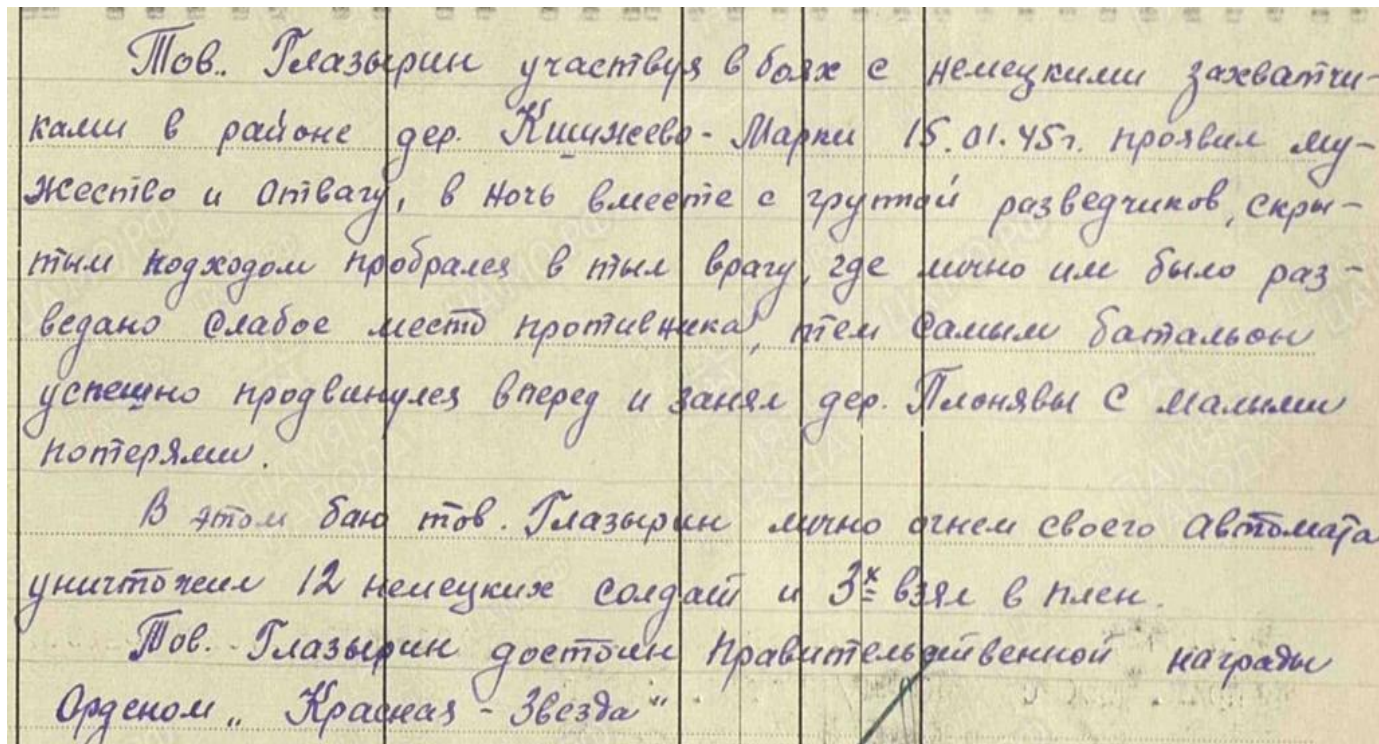 Тов. Глазырин участвуя в боях с немецкими захватчи-
ками в районе дер. Кшижево-Марки 15.01.45г. проявил му-
жество и отвагу, в ночь вместе с группой разведчиков, скры-
тым подходом пробрался в тыл врагу, где лично им было раз-
ведано слабое место противника, тем самым батальон
успешно продвинулся вперед и занял дер. Плонявы с малыми
потерями.
В этом баю тов. Глазырин лично огнем своего автомата
уничтожил 12 немецких солдат и 3х взял в плен.
Тов. Глазырин достоин правительственной награды
Орденом „Красная-Звезда"